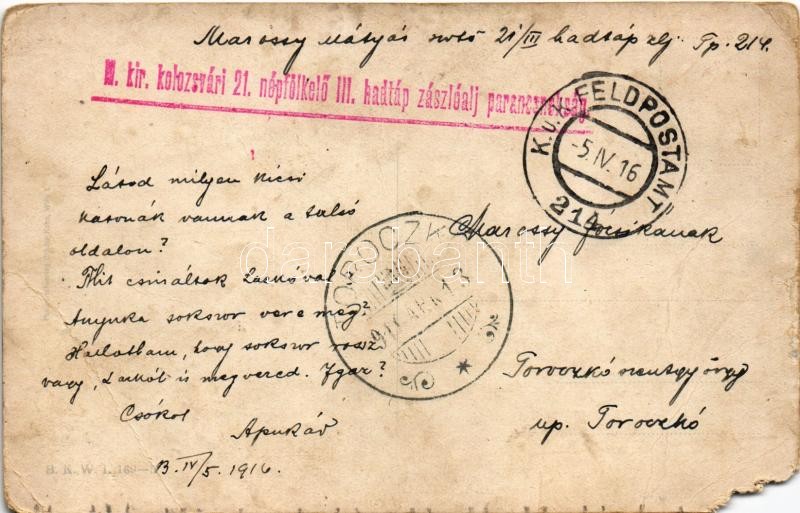 Marossy Mátyás 21/III hadtáp zlj. Tp. 214.
M. kir. kolozsvári 21. népfölkelő III. hadtáp zászlóalj parancsnokság
K.u.K. FELDPOSTAMT
-5.IV.16
214
Látod milyen kicsi
katonák vannak a tulsó
oldalon?
Mit csináltok Lackóval
Anyuka sokszor vere meg?
Hallottam, hogy sokszor rossz
vagy, Lackót is megvered. Igaz?
Csókol
Apukád
B. IV/5. 1916.
Marossy Jócsikának
TOROCZKÓ
Toroczkószentgyörgy
up. Toroczkó
B. K. W. I. 169
darabanth